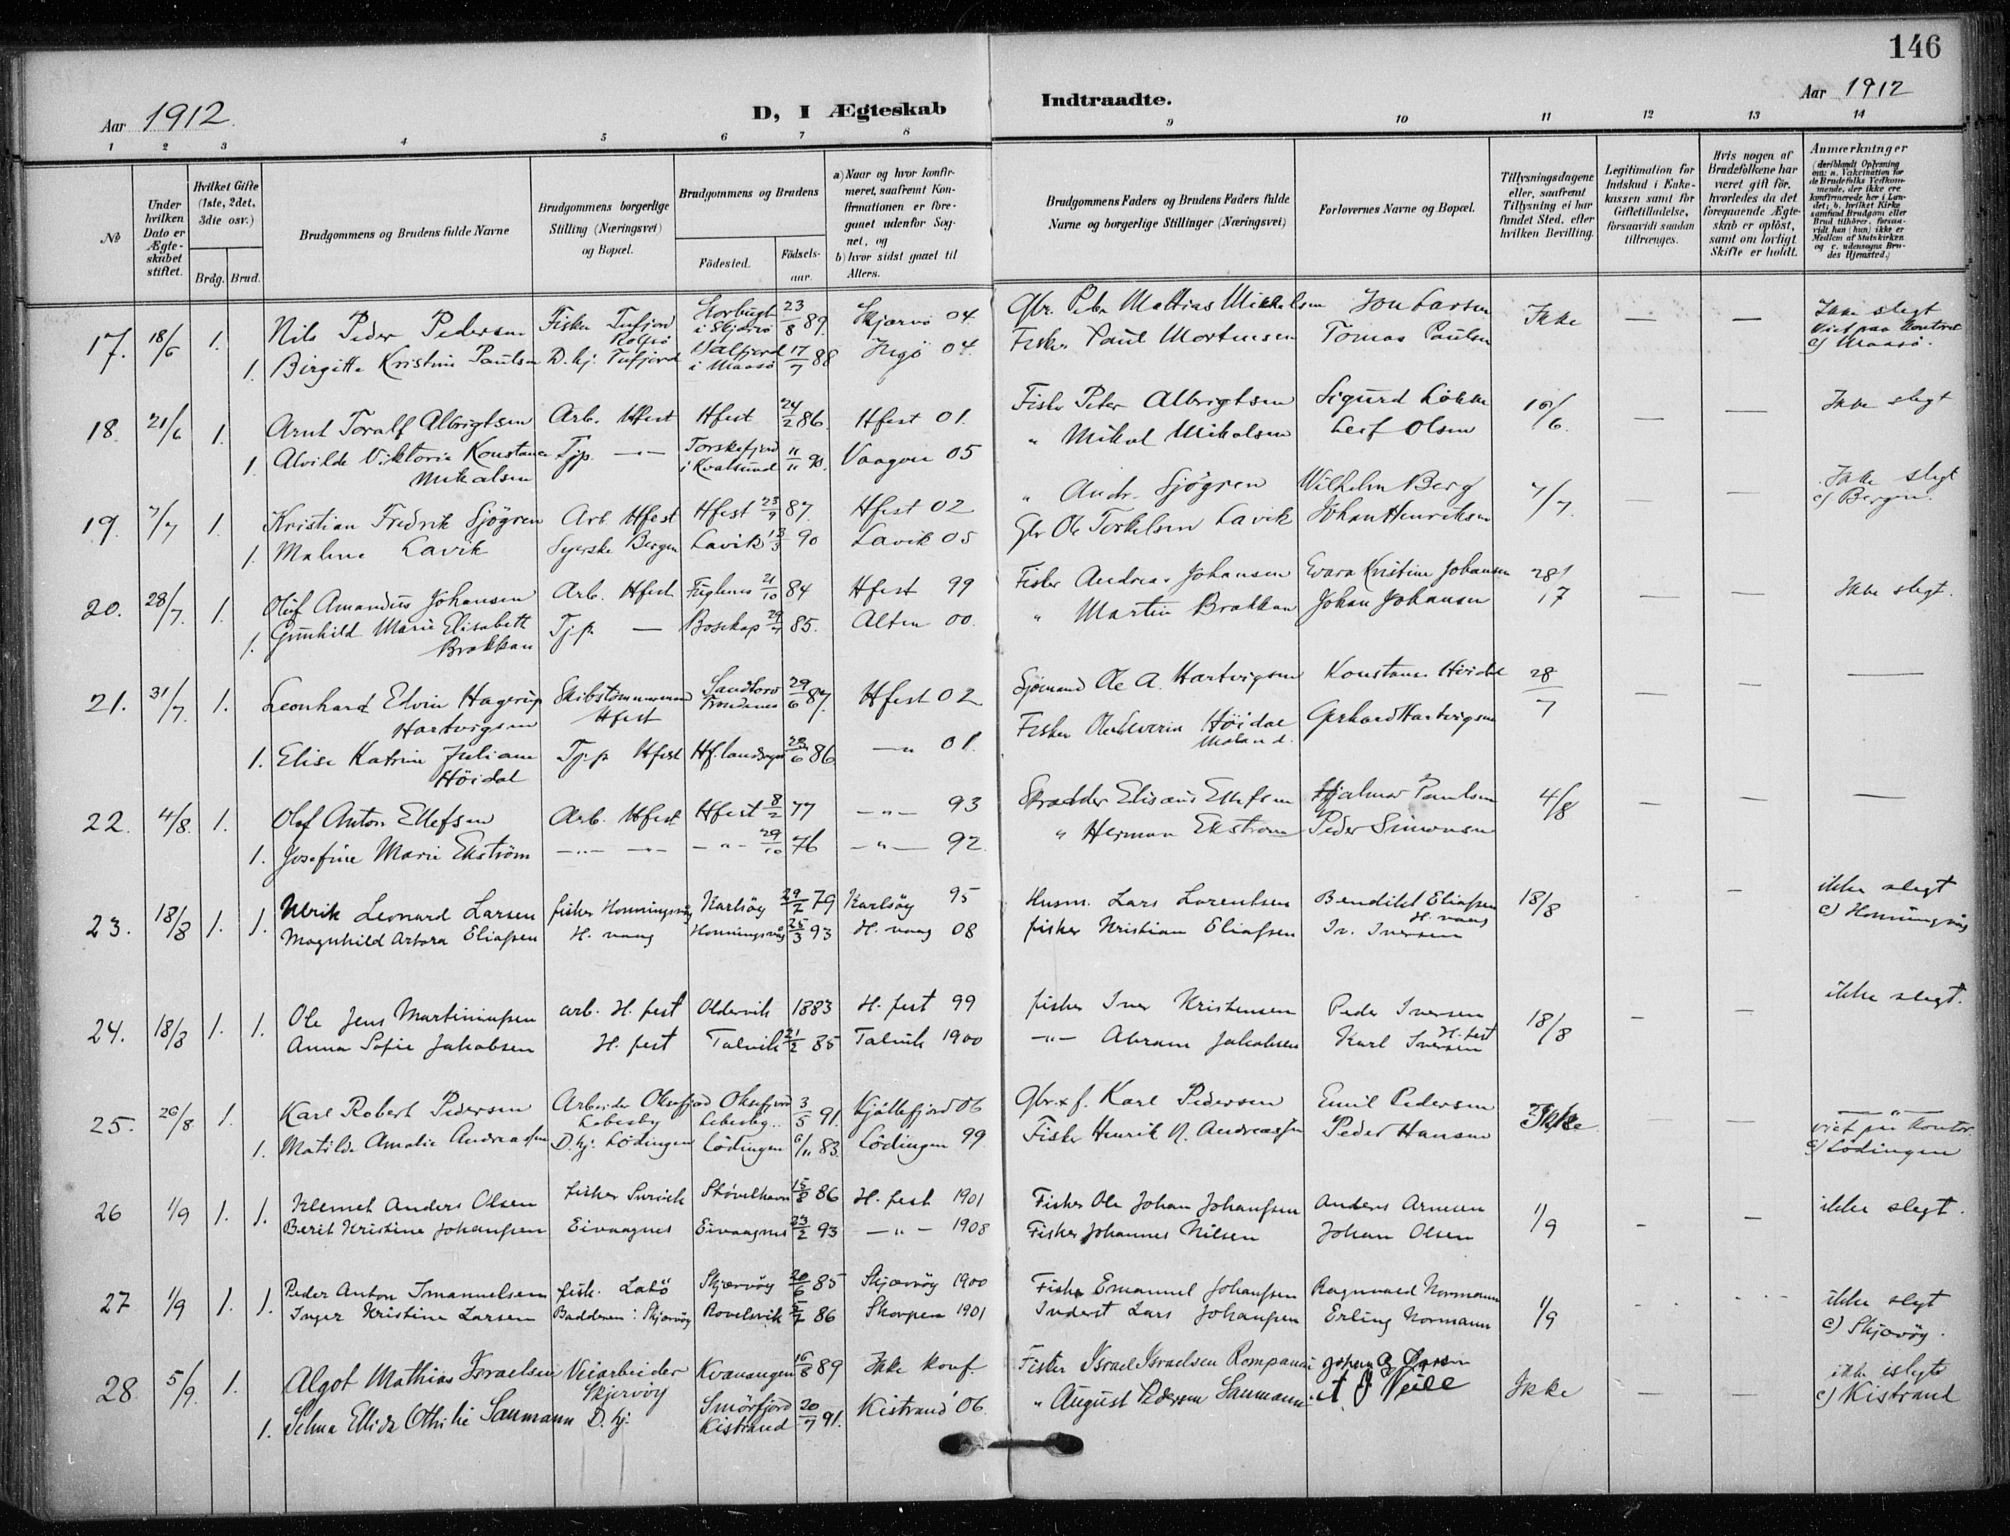 146
Aar 1912.
D, I Ægteskab
Indtraadte.
Aar 1912
1 2 3 4 5 6 7 8 9 10 11 12 13 14
No
Under hvilken Dato er Ægteskabet stiftet.
Hvilket Gifte (1ste, 2det, 3die osv.)
Brdg. Brud.
Brudgommens og Brudens fulde Navne
Brudgommens borgerlige Stilling (Næringsvei) og Bopæl.
Brudgommens og Brudens
Fødested.
Fødselsaar.
a) Naar og hvor konfirmeret, saafremt Konfirmationen er foregaaet udenfor Sognet, og
b) hvor sidst gaaet til Alters.
Brudgommens Faders og Brudens Faders fulde Navne og borgerlige Stillinger (Næringsvei)
Forlovernes Navne og Bopæl.
Tillysningsdagene eller, saafremt Tillysning ei har fundet Sted, efter hvilken Bevilling.
Legitimation for Indskud i Enkekassen samt for Giftetilladelse, forsaavidt saadan tiltrænges.
Hvis nogen af Brudefolkene har været gift før, hvorledes da det foregaaende Ægteskab er opløst, samt om lovligt Skifte er holdt.
Anmærkninger
(deriblandt Oplysning om: a. Vakcination for de Brudefolks Vedkommende, der ikke ere konfirmerede her i Landet; b. hvilket Kirkesamfund Brudgom eller Brud tilhører, forsaavidt han (hun) ikke er Medlem af Statskirken og c. udensogns Brudes Hjemsted.)
17. 18/6 1. Nils Peder Pedersen Fisker Tufjord Rolfsø i Skjærvø 23/8 89. Skjærvø 04. Gbr. Peter Mathias Mikkelsen Jon Larsen Ikke — — Ikke slegt
viet paa Kontoret
1. Birgitte Kristine Paulsen D. hj. Tufjord i Maasø 17/7 88 Ingø 04. Fisker Paul Mortensen Tomas Paulsen c) Maasø.
18. 21/6 1. Arnt Toralf Albrigtsen Arb. Hfest Hfest 24/2 86. Hfest 01. Fisker Peter Albrigtsen Sigurd Løkke 16/6 — — Ikke slegt
1. Alvilde Viktoria Konstanse Mikalsen Tjp. —"— Torskefjord i Kvalsund 11/11 90. Vaagen 05 " Mikal Mikalsen Leif Olsen
19. 7/7 1. Kristian Fredrik Sjøgren Arb Hfest Hfest 23/9 87. Hfest 02 " Andr. Sjøgren Wilhelm Berg 7/7. — — Ikke slegt
1. Maline Lavik Syerske Bergen Lavik 90 Lavik 05 Gbr Ole Torkelsen Lavik Johan Henriksen c) Bergen.
20. 28/7. 1. Oluf Amandus Johansen Arb. Hfest Fuglenes 21/10 84 Hfest 99 Fisker Andreas Johansen Evara Kristine Johansen 28/7 — — Ikke slegt.
1. Gunhild Marie Elisabett Brakkan Tjp. — Bosekop 85. Alten 00. " Martin Brakkan Johan Johansen
21. 31/7. 1. Leonhard Edvin Hagerup Hartvigsen Skibstømmermand Hfest Sandtorv Trondenes 29/6 87. Hfest 02 Sjømand Ole A. Hartvigsen Konstanse Høidal 28/7 — — —
1. Elise Katrine Juliane Høidal Tjp. Hfest Hf. landsogn 86 —"— 01. Fisker Ole Severin Høidal Gerhard Hartvigsen
22. 4/8. 1. Olaf Anton Ellefsen Arb. Hfest Hfest 8/2 77 —"— 93 Skrædder Elisæus Ellefsen Hjalmar Paulsen 4/8 — — —
1. Josefine Marie Ekstrøm —"— —"— —"— 29/10 76 —"— 92. " Herman Ekstrøm Peder Simonsen
23. 18/8 1. 1. Ulrik Leonard Larsen fisker Honningsvåg Karlsöy 79 Karlsöy 95 Husm. Lars Lorentsen Bendikt Eliassen H. vaag 18/8 - - ikke slegt
Magnhild Artora Eliassen H. vaag Honningsvåg 25/3 93 H. vaag 08 fisker Kristian Eliassen Iv. Iversen c) Honningsvåg
24. 18/8 1. 1. Ole Jens Martiniussen arb. H. fest Oldervik 1883 H. fest 99 fisker Iver Kristensen Peder Iversen H. fest 18/8 - - ikke slegt.
Anna Sofie Jakobsen H. fest Talvik 21/2 85 Talvik 1900 —"— Abram Jakobsen Karl Iversen
25. 26/8 1. Karl Robert Pedersen Arbeider Oksefjord Lebesby Oksefjord Lebesby.. 3/5 91. Kjøllefjord 06 Gbr. & f. Karl Pedersen Emil Pedersen Ikke — — —"—
viet på Kontor
1. Matilde Amalie Andreassen D. hj. Lødingen Lødingen 6/11 83. Lødingen 99. Fisker Henrik N. Andreassen Peder Hansen c) Lødingen
26 1/9 1. 1. Klemet Anders Olsen fisker Survik Støvelhavn 86 H. fest 1901 Fisker Ole Johan Johanssen Anders Arnesen 1/9 - - ikke slegt.
Berit Kristine Johanssen Eivaagnes Eivaagnes 93 —"— 1908 Fisker Johannes Nilsen Johan Olsen
27 1/9 1. 1. Peder Anton Imanuelsen fisk. Skjærvöy 20/6 85 Skjærvöy 1900 Fisker Emanuel Johanssen Ragnvald Normann 1/9 - - ikke slegt
Inger Kristine Larsen Badderen i Skjærvöy 86 Skorpen 1901 Inderst Lars Johanssen Erling Normann c) Skjærvöy.
28. 5/9. 1. Algot Mathias Israelsen Veiarbeider Skjervöy Kvænangen 89 Ikke konf. Fisker Israel Israelsen Ikke — — ikke islegt
1. Selma Ellida Othilie Saumann D. hj. Smørfjord Kistrand 20/7 91. Kistrand 06. " August Pedersen Saumann c) Kistrand